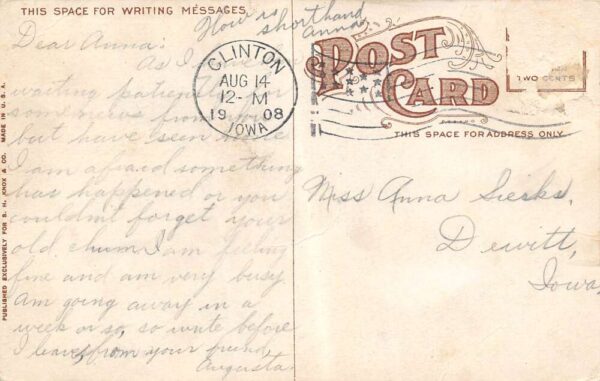 THIS SPACE FOR WRITING MESSAGES
How is
shorthand
Anna
Dear Anna:
As I have be
waiting patiently for
some news from you
but have seen none
I am afraid something
has happened or you
couldn't forget your
old chum. I am feeling
fine and am very busy
am going away in a
week or so, so write before
I leave, from your friend,
Augusta.
PUBLISHED EXCLUSIVELY FOR S. H. KNOX & CO. MADE IN U.S.A.
CLINTON
AUG 14
12-M
19 08
IOWA
POST
CARD
TWO CENTS
THIS SPACE FOR ADDRESS ONLY
Miss Anna
Dewitt,
Iowa,